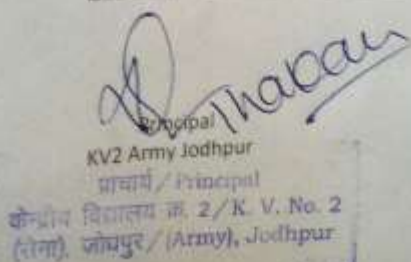 Thakan
Principal
KV2 Army Jodhpur
प्राचार्य / Principal
केन्द्रीय विद्यालय क्र. 2 / K. V. No. 2
(सेना), जोधपुर / (Army), Jodhpur